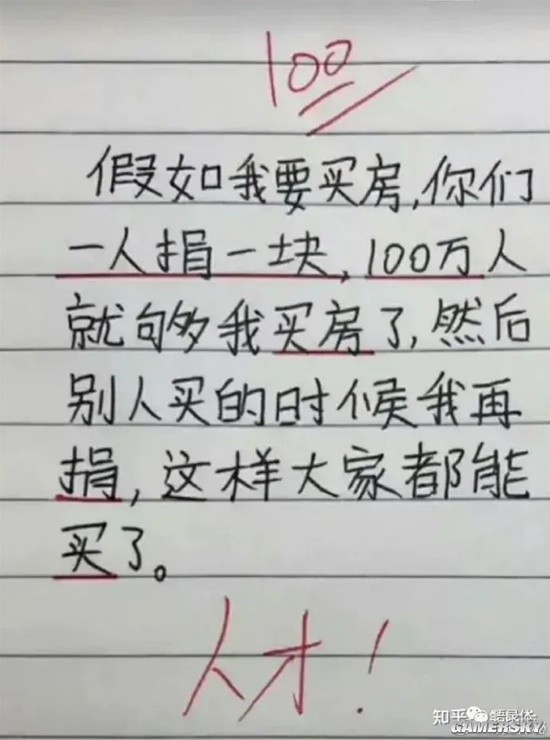 100
假如我要买房,你们
一人捐一块,100万人
就够我买房了,然后
别人买的时候我再
捐,这样大家都能
买了。
人才!
知乎
GAMERSKY